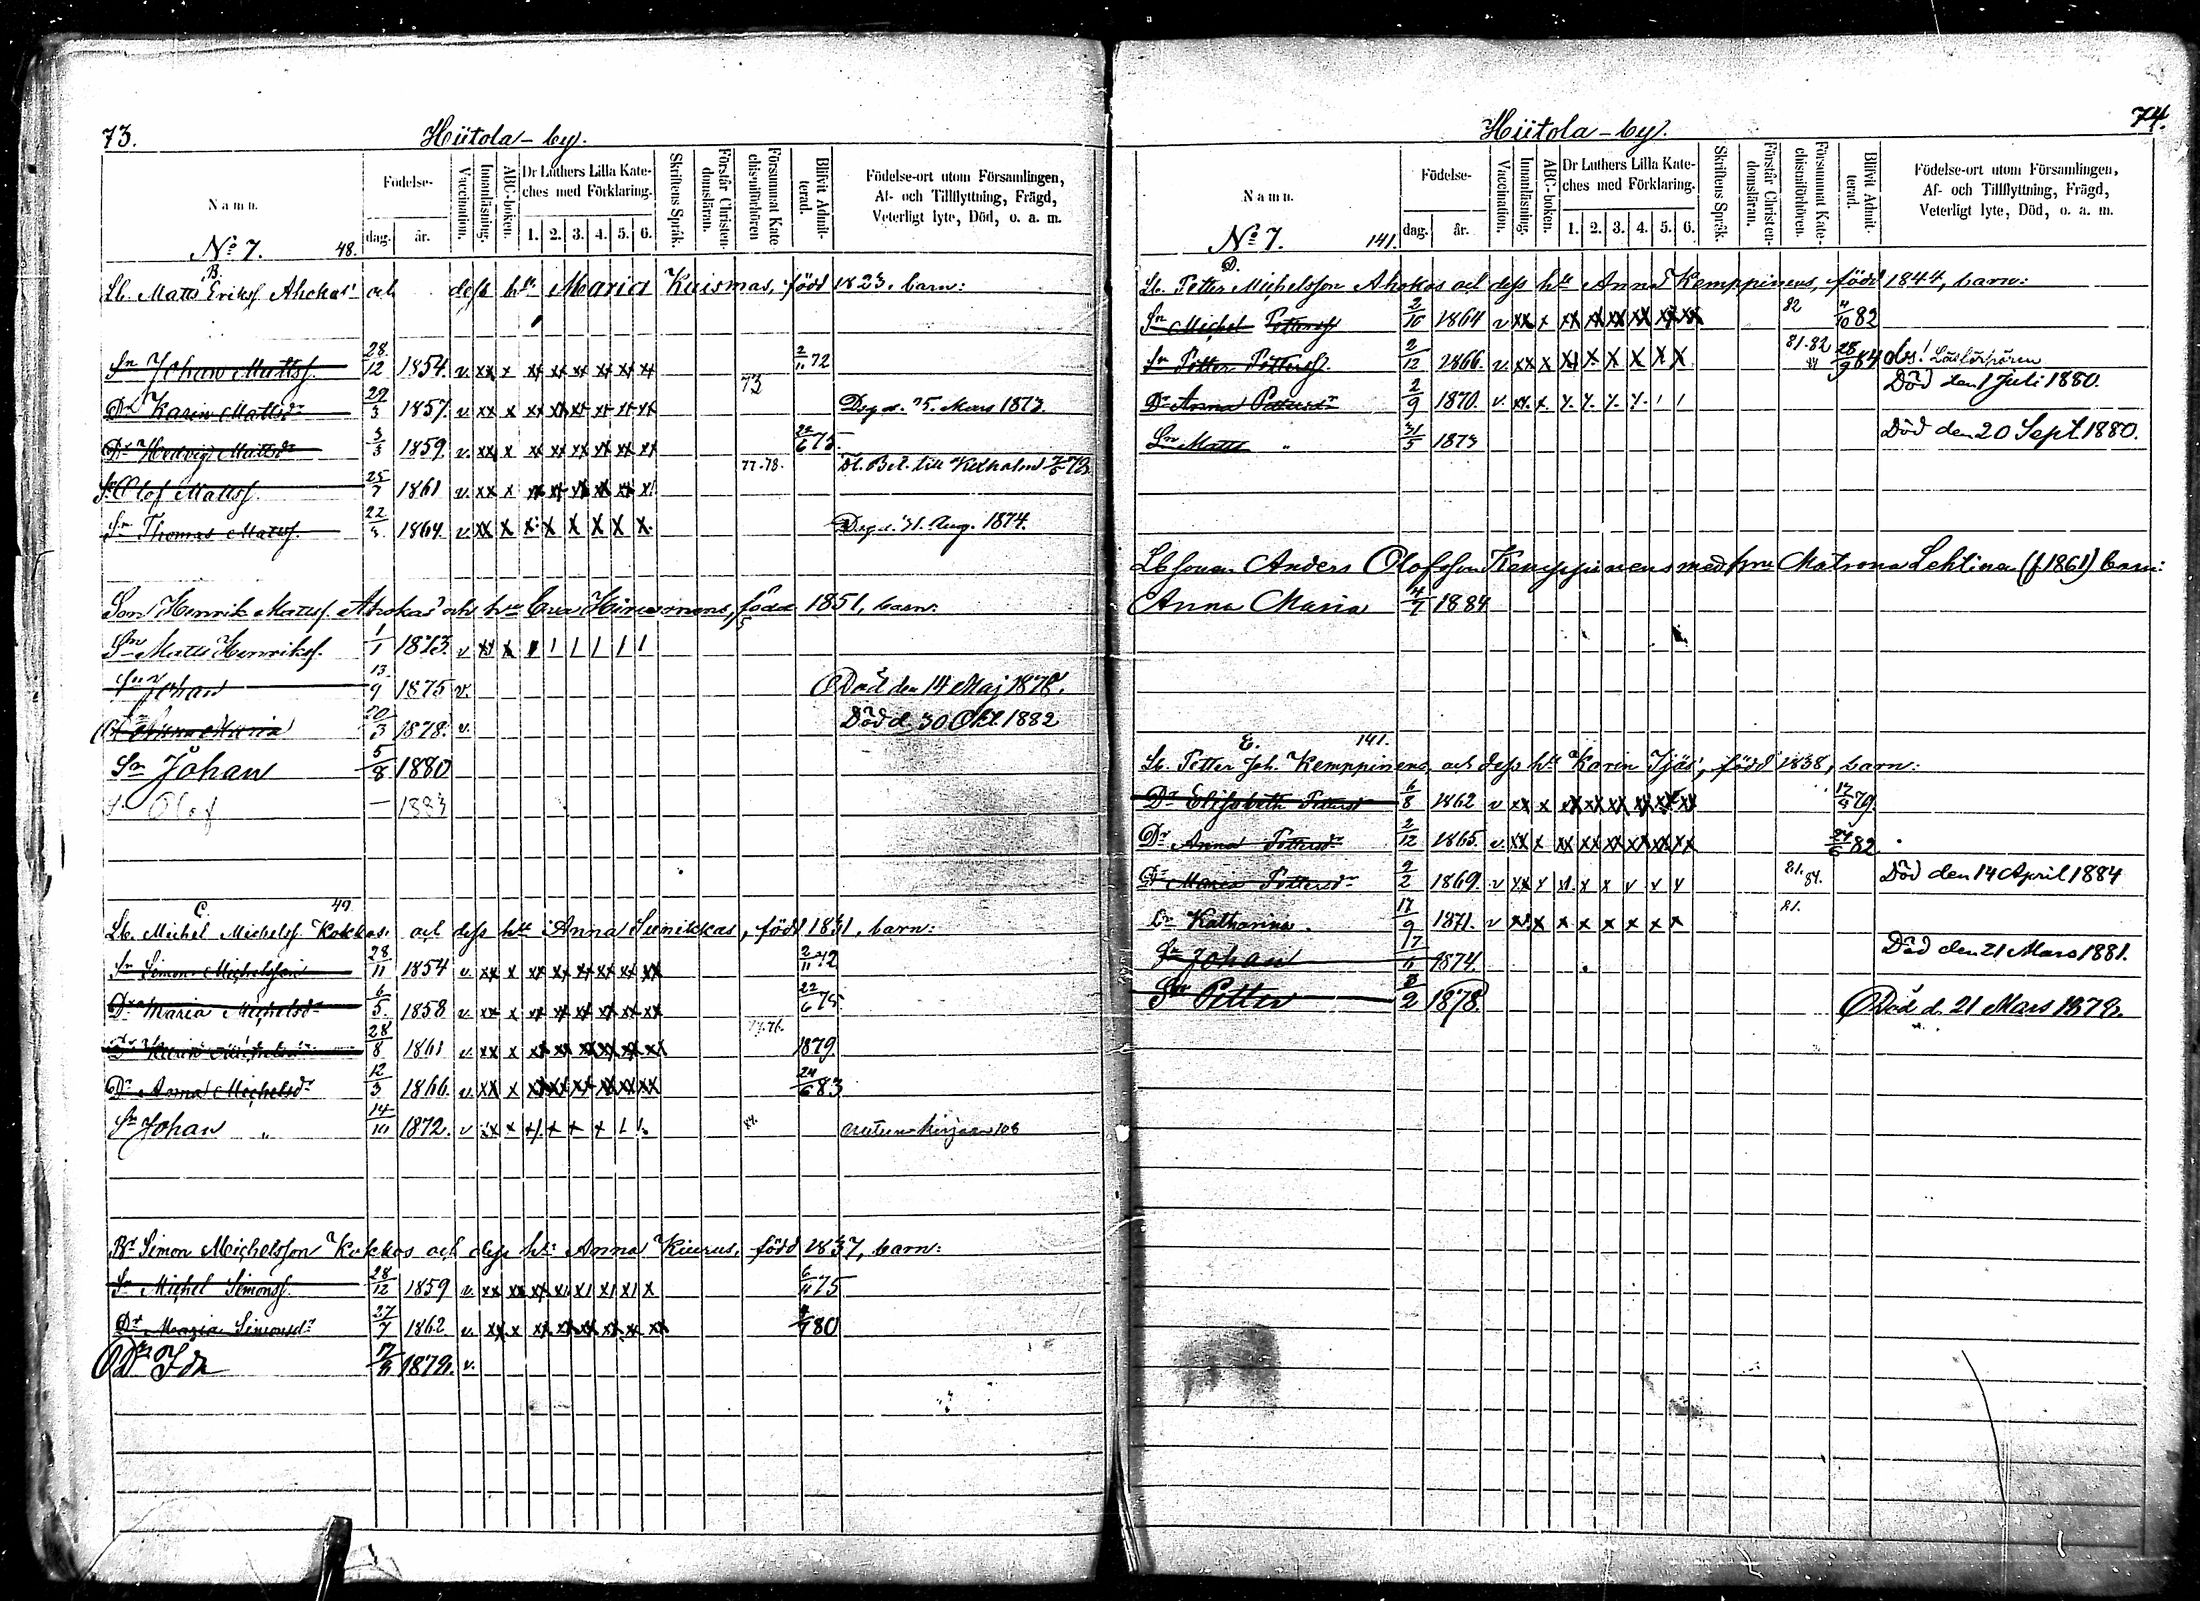 73.
Hiitola-by.
Namn.
Födelse-
dag.
år.
Vaccination.
Innanläsning.
ABC-boken.
Dr Luthers Lilla Kate-
ches med Förklaring.
1. 2. 3. 4. 5. 6.
Skriftens Språk.
Förstår Christen-
domsläran.
Försummat Kate
chismiförhören
Blifvit Admit-
terad.
Födelse-ort utom Församlingen,
Af- och Tillflyttning, Frägd,
Veterligt lyte, Död, o. a. m.
No 7. 48.
B.
Lb. Matts Erikss. Ahokas och dess hu Maria Kuismas, född 1823, barn:
Sn Johan Mattss. 28/12 1854. v. xx x xx xx xx xx xx xx 2/11 72
Dr Karin Mattsdr 29/3 1857. v. xx x xx xx xx xx xx xx 73 Deg d. 25. Mars 1873.
Dr Hedvig Mattsdr 3/3 1859. v. xx x xx xx xx xx xx xx 22/6 75
Sn Olof Mattss. 25/7 1861 v. xx x xx xx xx xx xx x 77-78.
Sn Thomas Mattss. 22/ 1864. v. xx x x x x x x x. Deg d. 31. Aug. 1874.
Son Henrik Mattss. Ahokas och hu Eva Hirvonens, född 1851, barn:
Sn Matts Henrikss. 1/1 1873. v
Sn Johan 13/9 1875 v. Död den 14 Maj 1878.
Anna Maria 20/3 1878. v. Död d. 30 Okt 1882
Sn Johan 5/8 1880
Sn Olof — 1883
C. 49
Lb. Michel Michelss. Kokkos och dess hu Anna Sunikkas, född 1831, barn:
Sn Simon Michelsson 28/11 1854 v. xx x xx xx xx xx xx xx 2/11 72
Dr Maria Michelsdr 6/5. 1858 v. xx x xx xx xx xx xx xx 22/6 75.
Dr Karin Michelsdr 28/8 1861 v. xx x xx xx xx xx xx xx 1879.
Dr Anna Michelsdr 12/3 1866. v. xx x xx xx xx xx xx xx 24/6 83
Sn Johan " 14/10 1872. v
Br Simon Michelsson Kokkos och dess hu Anna Kiurus, född 1837, barn:
Sn Michel Simonss. 28/12 1859 v. 6/11 75
Dr Maria Simonsdr 27/7 1862 v. 80
Dr Ida 1879. v.
74.
Hiitola-by.
Namn.
Födelse-
dag.
år.
Vaccination.
Innanläsning.
ABC-boken.
Dr Luthers Lilla Kate-
ches med Förklaring.
1. 2. 3. 4. 5. 6.
Skriftens Språk.
Förstår Christen-
domsläran.
Försummat Kate-
chismiförhören.
Blifvit Admit-
terad.
Födelse-ort utom Församlingen,
Af- och Tillflyttning, Frägd,
Veterligt lyte, Död, o. a. m.
No 7. 141.
D.
Lb. Petter Michelsson Ahokas och dess hu Anna Kemppinens, född 1844, barn:
Sn Michel Petterss. 2/10 1864 v xx x xx xx xx xx xx xx 82 4/10 82
Sn Petter Petterss. 2/12 1866. v. xx x x x x x x x 81-82 28/9 84 obs!
Dr Anna Pettersdr 2/9 1870. v. xx. x. Död den 1 Juli 1880.
Sn Matts " 31/5 1873 Död den 20 Sept 1880.
Lbsonen Anders Olofsson Kemppinens med hru Matrona Lehtinen (f 1861) barn:
Anna Maria 4/7 1884
E. 141.
Lb. Petter Joh. Kemppinens och dess hu Karin Ijäs, född 1838, barn:
Dr Elisabeth Pettersdr 6/8 1862 v xx x xx xx xx xx xx xx 79.
Dr Anna Pettersdr 2/12 1865. v. xx x xx xx xx xx xx xx 24/6 82
Dr Maria Pettersdr 2/2 1869. v xx x x x x x x x 81. 84. Död den 14 April 1884
Dr Katharina. 17/9 1871. v xx x x x x x x x 81.
Sn Johan 1874. Död den 21 Mars 1881.
Sn Petter 1878. Död d. 21 Mars 1879.